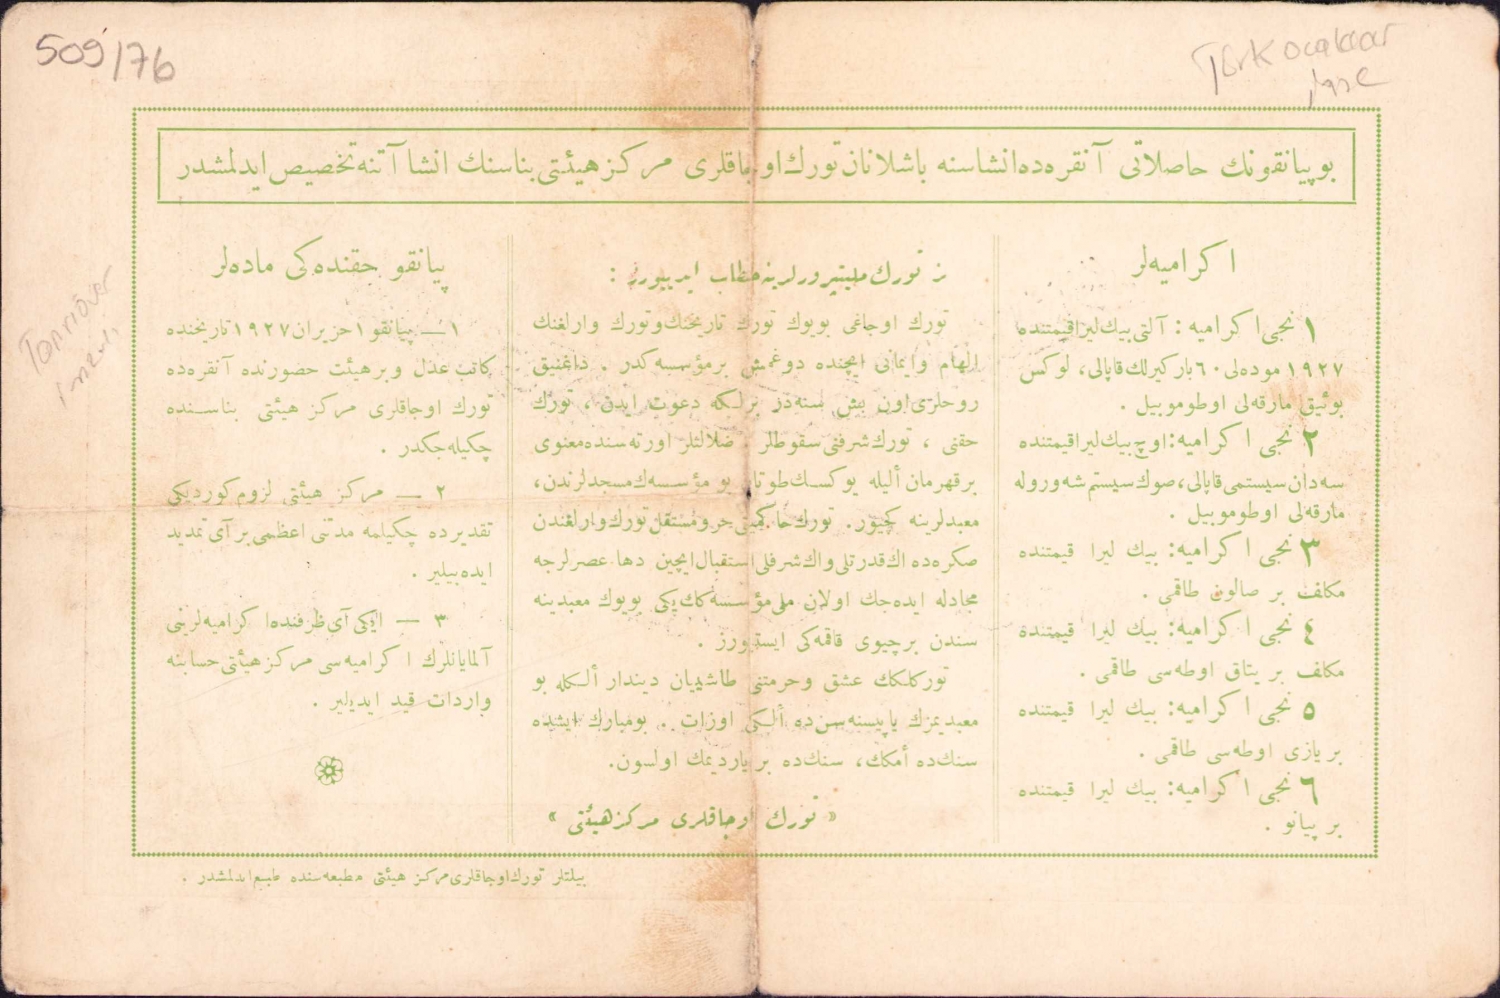 509/76
Türk ocakları
بو پیانقونك حاصلاتی آنقره‌ده انشاسنه باشلانان تورك اوجاقلری مركز هیئتی بناسنك انشاآتنه تخصیص ایدلمشدر
اكرامیه‌لر
١ نجی اكرامیه : آلتی بیك لیرا قیمتنده
١٩٢٧ موده‌لی ٦٠ باركیرلك قاپالی، لوكس
بوئیق مارقه‌لی اوطوموبیل .
٢ نجی اكرامیه: اوچ بیك لیرا قیمتنده
سه‌دان سیستمی قاپالی، صوك سیستم شه‌وروله
مارقه‌لی اوطوموبیل .
٣ نجی اكرامیه: بیك لیرا قیمتنده
مكلف بر صالون طاقمی .
٤ نجی اكرامیه: بیك لیرا قیمتنده
مكلف بر یتاق اوطه‌سی طاقمی .
٥ نجی اكرامیه: بیك لیرا قیمتنده
بر یازی اوطه‌سی طاقمی .
٦ نجی اكرامیه: بیك لیرا قیمتنده
بر پیانو .
تورك ملیتپرورلرینه خطاب ایدییورز :
تورك اوجاغی بویوك تورك تاریخنك و تورك وارلغنك
الهام و ایمانی ایچنده دوغمش بر مؤسسه‌كدر . داغنیق
روحلری اون بش سنه‌در برلكه دعوت ایدن ، تورك
حقنی ، تورك شرفنی سقوطلر ، ضلالتلر اورته‌سنده معنوی
بر قهرمان ألیله یوكسك طوتان بو مؤسسه‌ك مسجدلرندن،
معبدلرینه كچیور. تورك حاكمیتی حر و مستقل تورك وارلغندن
صكره‌ده اك قدرتلی و اك شرفلی استقبال ایچین دها عصرلرجه
مجادله ایده‌جك اولان ملی مؤسسه‌ك یكی بویوك معبدینه
سندن بر چیوی قاقمه‌كی ایستیورز .
توركلكك عشق و حرمتنی طاشییان دیندار ألكله بو
معبدیمزك یاپیسنه سن ده ألكی اوزات .. بو مبارك ایشده
سنك‌ده أمكك، سنك‌ده بر یاردیمك اولسون.
« تورك اوجاقلری مركز هیئتی »
پیانقو حقنده‌كی ماده‌لر
١ — پیانقو ١ حزیران ١٩٢٧ تاریخنده
كاتب عدل و بر هیئت حضورنده آنقره‌ده
تورك اوجاقلری مركز هیئتی بناسنده
چكیله‌جكدر .
٢ — مركز هیئتی لزوم كوردیكی
تقدیرده چكیلمه مدتنی اعظمی بر آی تمدید
ایده‌بیلیر .
٣ — ایكی آی ظرفنده اكرامیه‌لرینی
آلمایانلرك اكرامیه‌سی مركز هیئتی حسابنه
واردات قید ایدیلیر .
بیلتلر تورك اوجاقلری مركز هیئتی مطبعه‌سنده طبع ایدلمشدر .
Tanrıöver